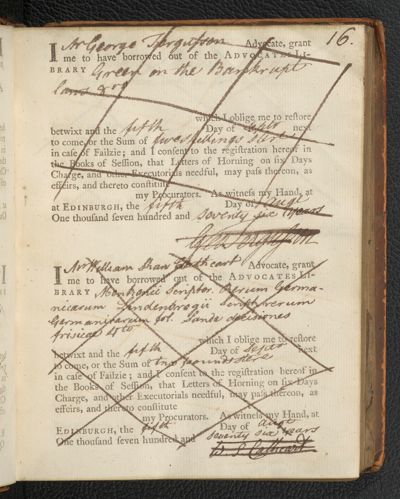 16.
I Mr George Fergusson Advocate, grant
me to have borrowed out of the ADVOCATES LI-
BRARY Green on the Bankrupt
laws 8vo
which I oblige me to restore
betwixt and the fifth Day of next
to come, or the Sum of shillings Ster:
in case of Failzie; and I consent to the registration hereof in
the Books of Session, that Letters of Horning on six Days
Charge, and other Executorials needful, may pass thereon, as
effeirs, and thereto constitute
my Procurators. As witness my Hand, at
at EDINBURGH, the fifth Day of
One thousand seven hundred and Seventy six years
Geo Fergusson
I Mr William Shaw Cathcart Advocate, grant
me to have borrowed out of the ADVOCATES LI-
BRARY Scriptor. Rerum Germa-
nicarum Lindenbrogii Scriptrerum
Germanicarum fol. Sande decisiones
frisicae 4to
which I oblige me to restore
betwixt and the fifth Day of next
to come, or the Sum of two pounds
in case of Failzie; and I consent to the registration hereof in
the Books of Session, that Letters of Horning on six Days
Charge, and other Executorials needful, may pass thereon, as
effeirs, and thereto constitute
my Procurators. As witness my Hand, at
EDINBURGH, the fifth Day of
One thousand seven hundred and seventy six years
W. S. Cathcart